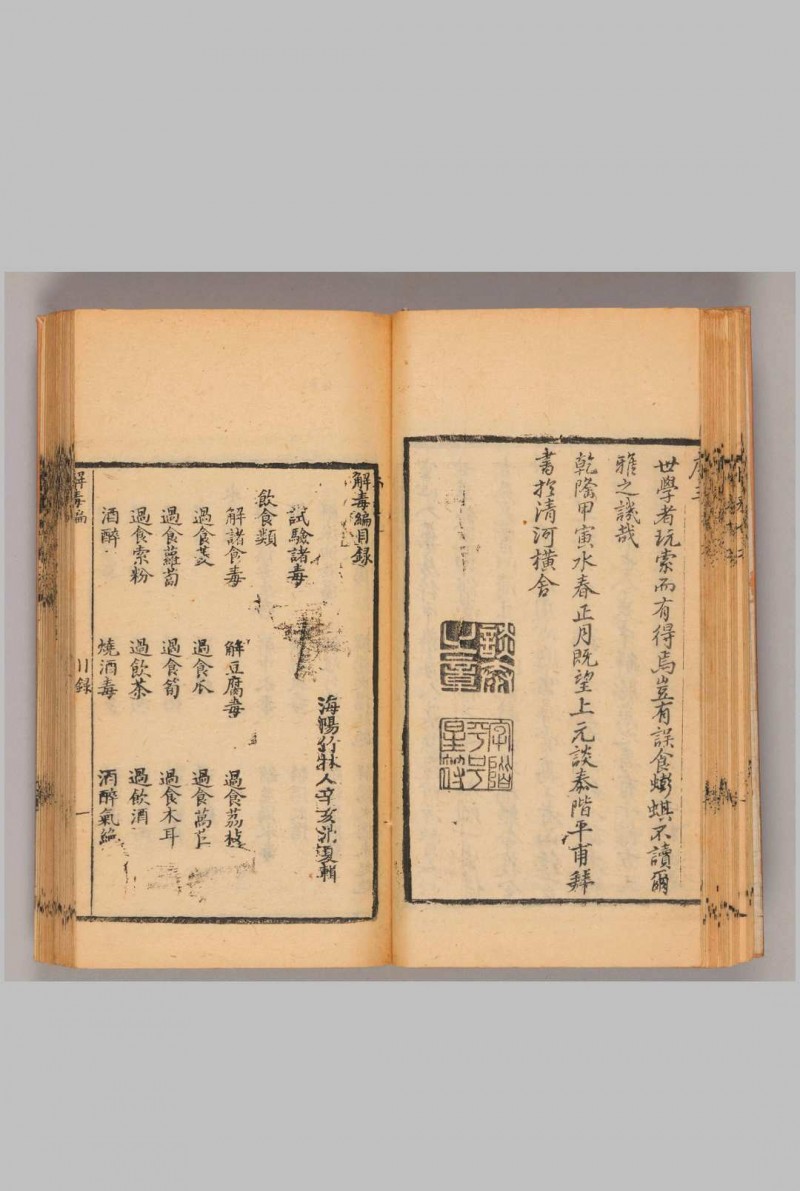 世學者玩索而有得焉豈有誤食蟛蜞不讀爾
雅之譏哉
乾隆甲寅水春正月既望上元談泰階平甫拜
書於清河橫舍
談泰
之章
字階
平号
星符
解毒編目録
海陽竹林人辛亥深夏輯
試驗諸毒
飲食類
解諸食毒
解豆腐毒
過食荔枝
過食菱
過食瓜
過食萵苣
過食蘿蔔
過食筍
過食木耳
過食索粉
過飲茶
過飲酒
酒醉
燒酒毒
酒醉氣絶
解毒編
目録
一